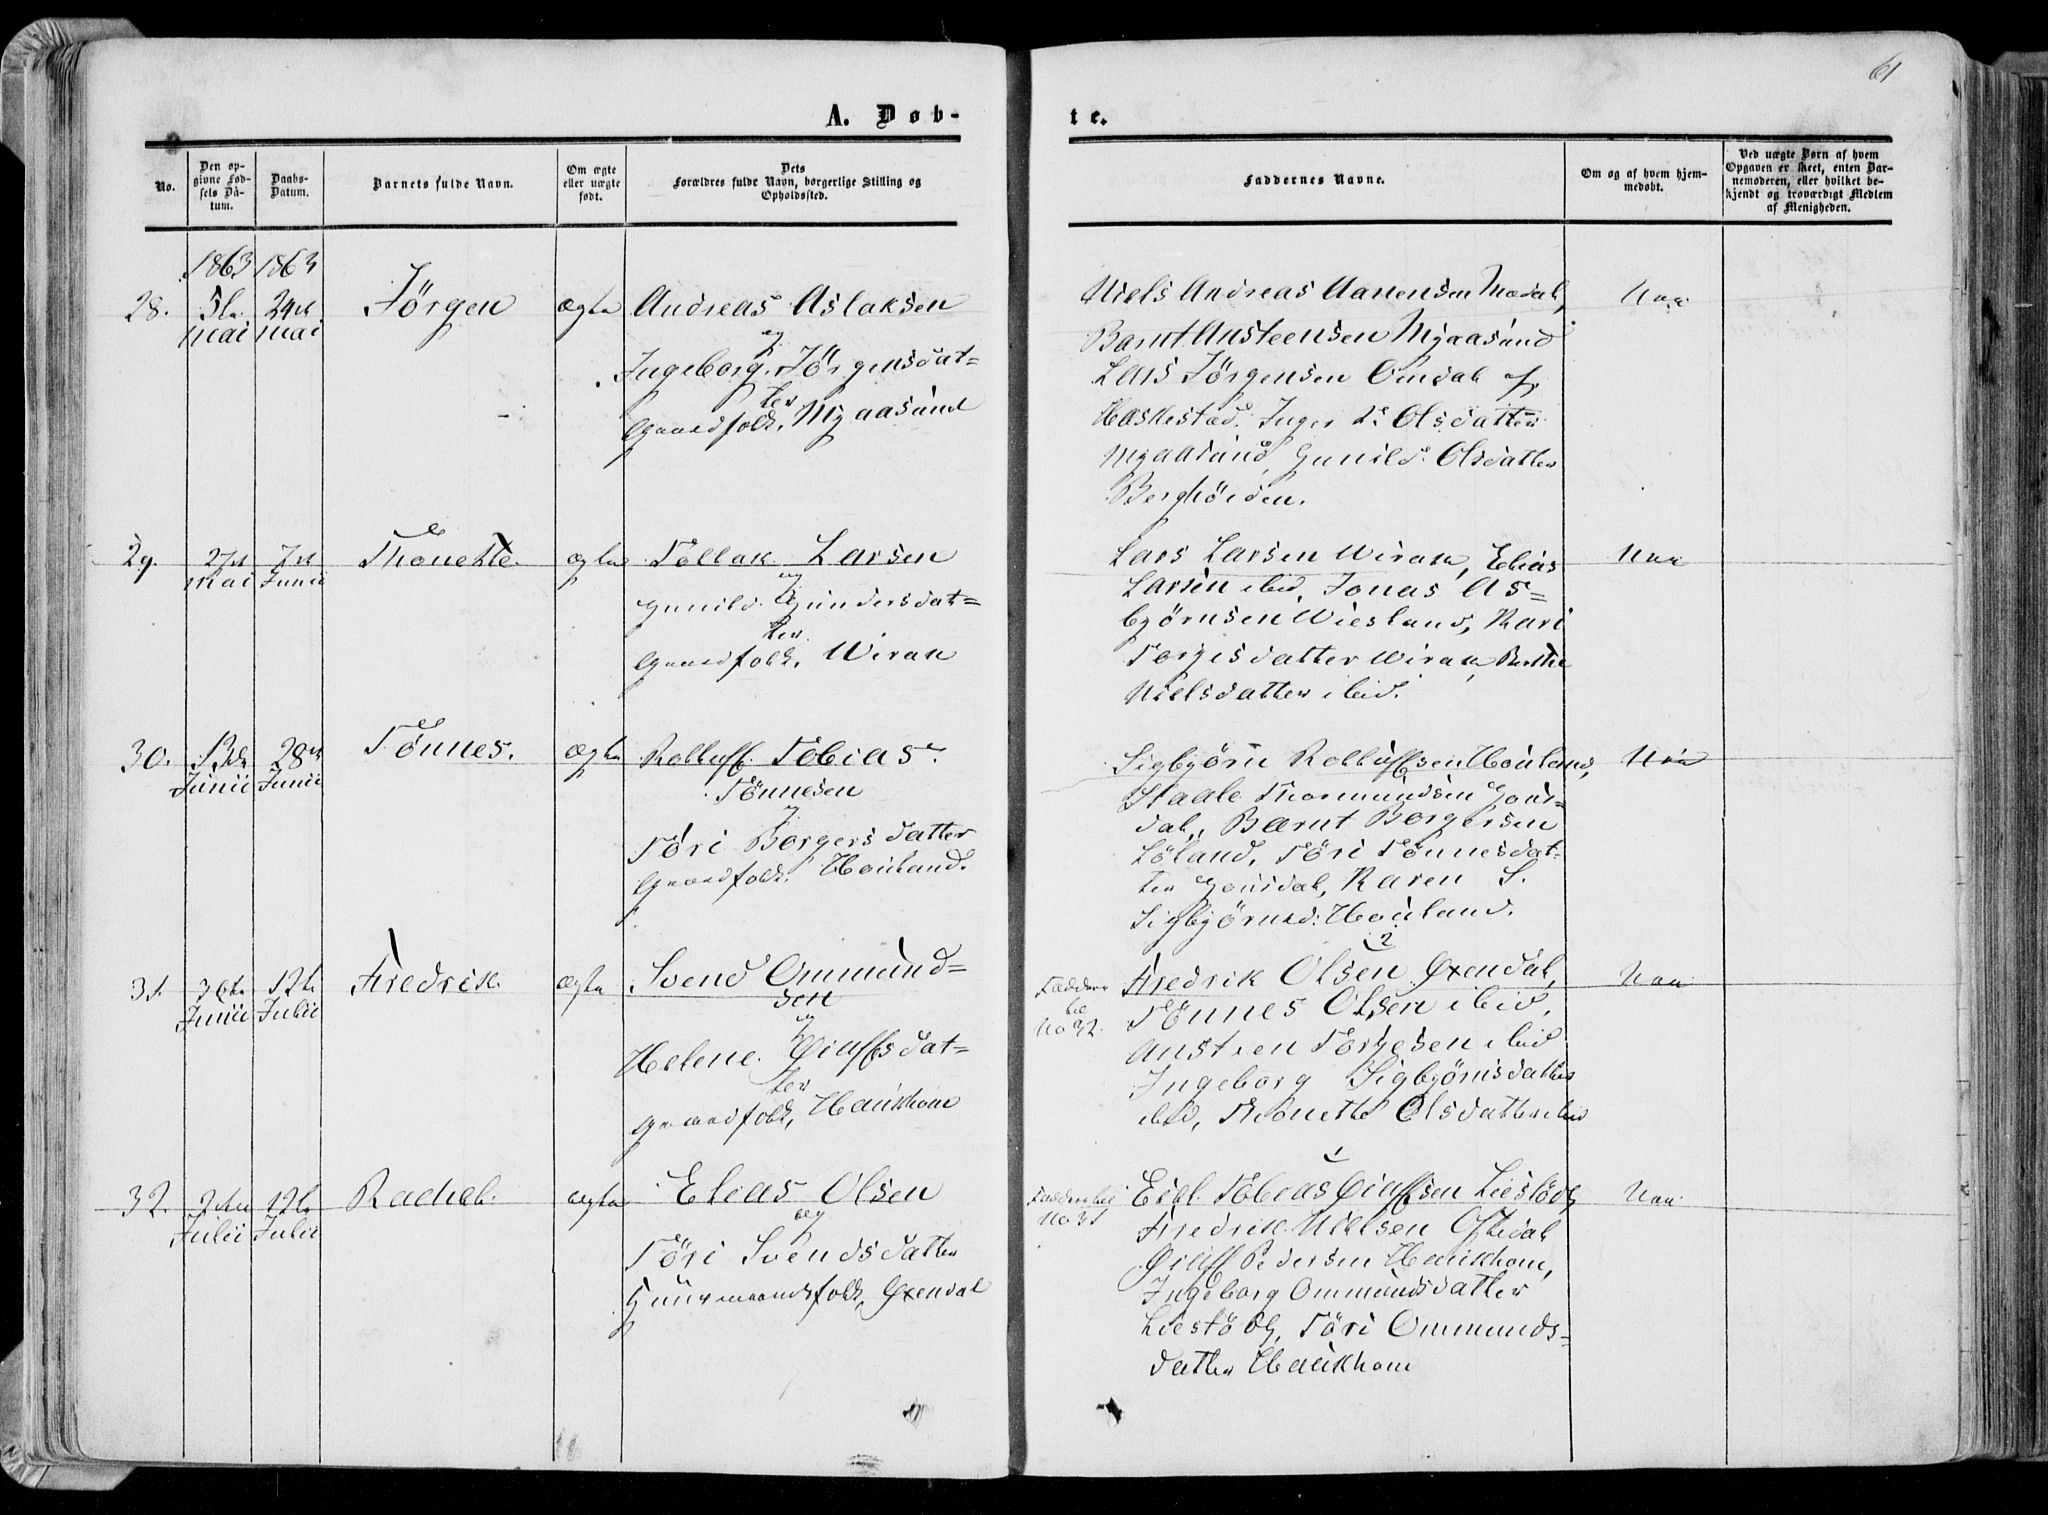 61
A. Døb-
te.
No.
Den op-
givne Fød-
sels Da-
tum.
Daabs-
Datum.
Barnets fulde Navn.
Om ægte
eller uægte
født.
Dets
Forældres fulde Navn, borgerlige Stilling og
Opholdssted.
Faddernes Navne.
Om og af hvem hjem-
medøbt.
Ved uægte Børn af hvem
Opgaven er skeet, enten Bar-
nemoderen, eller hvilket be-
kjendt og troværdigt Medlem
af Menigheden.
1863 1863
28. 5te 24de Jörgen ægte Andreas Aslaksen
Mai Mai
og
Ingeborg Jörgensdat=
ter
Gaardfolk, Mydasund
Niels Andreas Aanensen Modal, Nei
Barnt Ansteensen
Lars Jörgensen Omdal af
Heskestad. Inger Olsdatter
Gunild Olsdatter
Berghöiden.
29. 27de 7de Thonette. ægte Tollak Larsen
Mai Junii
og
Gunild Gundersdat=
ter
Gaardfolk, Wirak
Lars Larsen Wirak, Elias Nei
Larsen ibid, Jonas As=
bjørnsen Wiesland, Kari
Torgersdatter Wirak, Berthe
Nielsdatter ibid.
30. 13de 28de Tönnes. ægte Rolluff Tobias
Junii Junii
Tönnesen
og
Töri Borgersdatter
Gaardfolk Houland.
Sigbjörn Rolluffsen Houland, Nei
Staale Thormundsen Gous=
dal, Bærnt Borgersen
Löland, Töri Tönnesdat=
ter Gousdal, Karen S.
Sigbjörnsd: Houland.
31. 30te 12te Fredrik. ægte Svend Ommund=
Junii Julii
sen
og
Helene Oluffsdat=
ter
Gaardfolk, Haukhom
Faddere
til
No 32.
2
Fredrik Olsen Øxendal, Nei
Tönnes Olsen ibid,
Ansteen Torgesen ibid
Ingeborg Sigbjörnsdatter
ibid, Thonette Olsdatter ibid
32. 2den 12te Rachel. ægte Elias Olsen
Julii Julii
og
Töri Svendsdatter
Huusmandsfolk, Øxendal
Faddere til
No 31
1
Eidl Tobias Oluffsen Liestöl, Nei
Fredrik Nielsen Oftedal
Oluff Pedersen Haukhom,
Ingeborg Ommundsdatter
Liestöl, Töri Ommunds=
datter Haukhom